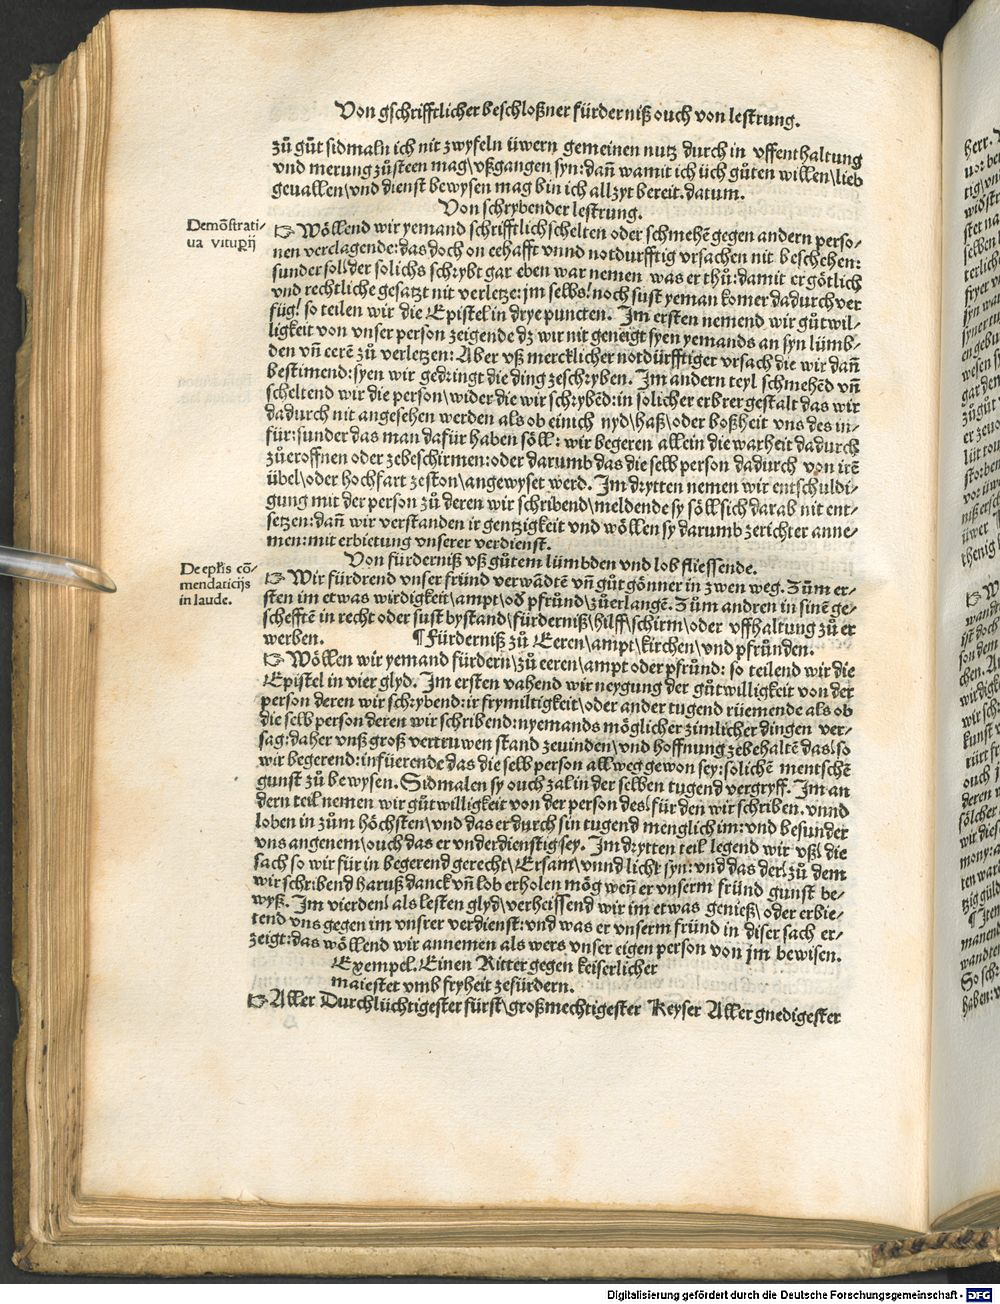 Von gschrifftlicher beschloßner fürderniß ouch von lestrung.
zů gůt sidmaln ich nit zwyfeln üwern gemeinen nutz durch in vffenthaltung
vnd merung zůsteen mag\vßgangen syn: dañ wamit ich üch gůten willen\lieb
geuallen\vnd dienst bewysen mag bin ich allzyt bereit. datum.
Von schrybender lestrung.
Demõstrati-
ua vitupij
☞ Wöllend wir yemand schrifftlich schelten oder schmehẽ gegen andern perso-
nen verclagende: das doch on eehafft vnnd notdurfftig vrsachen nit beschehen:
sunder soll der solichs schrybt gar eben war nemen was er thů: damit er götlich
vnd rechtliche gesatzt nit verletze: jm selbs! noch sust yeman komer dadurch ver
füg! so teilen wir die Epistel in drye puncten. Im ersten nemend wir gůtwil-
ligkeit von vnser person zeigende dz wir nit geneigt syen yemands an syn lümb-
den vñ eerẽ zů verletzen: Aber vß mercklicher notdürfftiger vrsach die wir dañ
bestimend: syen wir gedringt die ding zeschryben. Im andern teyl schmehẽd vñ
scheltend wir die person\wider die wir schrybẽd: in solicher erbrer gestalt das wir
dadurch nit angesehen werden als ob einich nyd\haß\oder boßheit vns des in-
für: sunder das man dafür haben söll: wir begeren allein die warheit dadurch
zů eroffnen oder zebeschirmen: oder darumb das die selb person dadurch von irẽ
übel\oder hochfart zeston\angewyset werd. Im drytten nemen wir entschuldi-
gung mit der person zů deren wir schribend\meldende sy söll sich darab nit ent-
setzen: dañ wir verstanden ir gentzigkeit vnd wöllen sy darumb zerichter anne-
men: mit erbietung vnserer verdienst.
Von fürderniß vß gůtem lümbden vnd lob fliessende.
De eplis cõ-
mendaticijs
in laude.
☞ Wir fürdrend vnser fründ verwãdtẽ vñ gůt gönner in zwen weg. Zům er-
sten im etwas wirdigkeit\ampt\od pfründ\zůerlangẽ. Zům andren in sinẽ ge-
schefftẽ in recht oder sust bystand\fürderniß\hilff\schirm\oder vffhaltung zů er
werben. ¶ Fürderniß zů Eeren\ampt\kirchen\vnd pfründen.
☞ Wöllen wir yemand fürdern\zů eeren\ampt oder pfründ: so teilend wir die
Epistel in vier glyd. Im ersten vahend wir neygung der gůtwilligkeit von der
person deren wir schrybend: ir frymiltigkeit\oder ander tugend rüemende als ob
die selb person deren wir schribend: nyemands möglicher zimlicher dingen ver-
sag: daher vnß groß vertruwen stand zeuinden\vnd hoffnung zebehaltẽ das\so
wir begerend: infüerende das die selb person allweg gewon sey: solichẽ mentschẽ
gunst zů bewysen. Sidmalen sy ouch zal in der selben tugend vergryff. Im an
dern teil nemen wir gůtwilligkeit von der person des! für den wir schriben. vnnd
loben in zům höchsten\vnd das er durch sin tugend menglich im: vnd besunder
vns angenem\ouch das er vnderdienstig sey. Im drytten teil legend wir vß! die
sach so wir für in begerend gerecht\Ersam\vnnd licht syn: vnd das der! zů dem
wir schribend haruß danck vñ lob erholen mög weñ er vnserm fründ gunst be-
wyß. Im vierden! als lesten glyd\verheissend wir im etwas genieß\oder erbie-
tend vns gegen im vnsrer verdienst: vnd was er vnserm fründ in diser sach er-
zeigt: das wöllend wir annemen als wers vnser eigen person von jm bewisen.
Exempel. Einen Ritter gegen keiserlicher
maiestet vmb fryheit zefürdern.
☞ Aller Durchlüchtigester fürst\großmechtigester Keyser Aller gnedigester
Digitalisierung gefördert durch die Deutsche Forschungsgemeinschaft - DFG